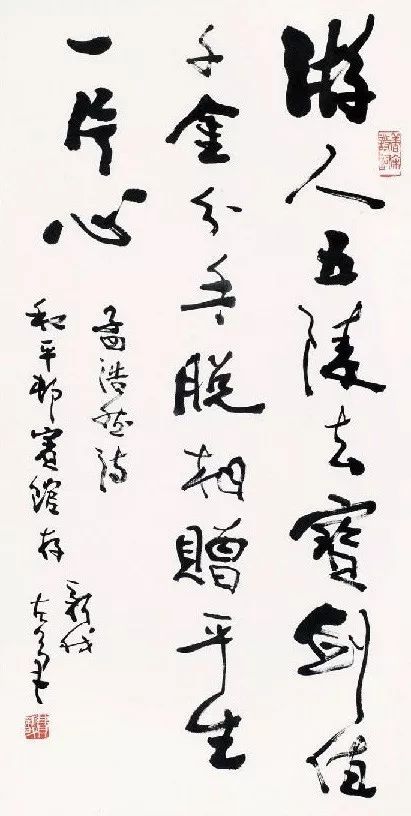 游人五陵去寶劍值
千金分手脫相贈平生
一片心
孟浩然詩
和平邨賓館存
新我
左筆